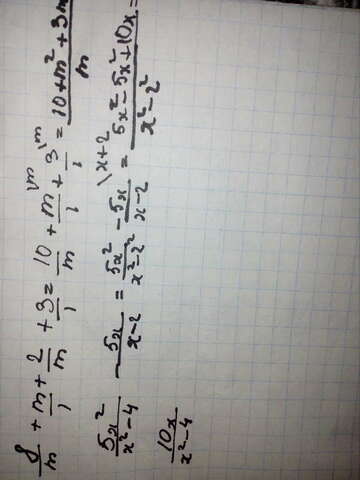 8/m + m/1 + 2/m + 3/1 = 10/m + m/1 \m + 3/1 \m = 10+m²+3m/m
5x²/x²-4 - 5x/x-2 = 5x²/x²-2² - 5x/x-2 \x+2 = 5x²-5x²+10x/x²-2² =
10x/x²-4